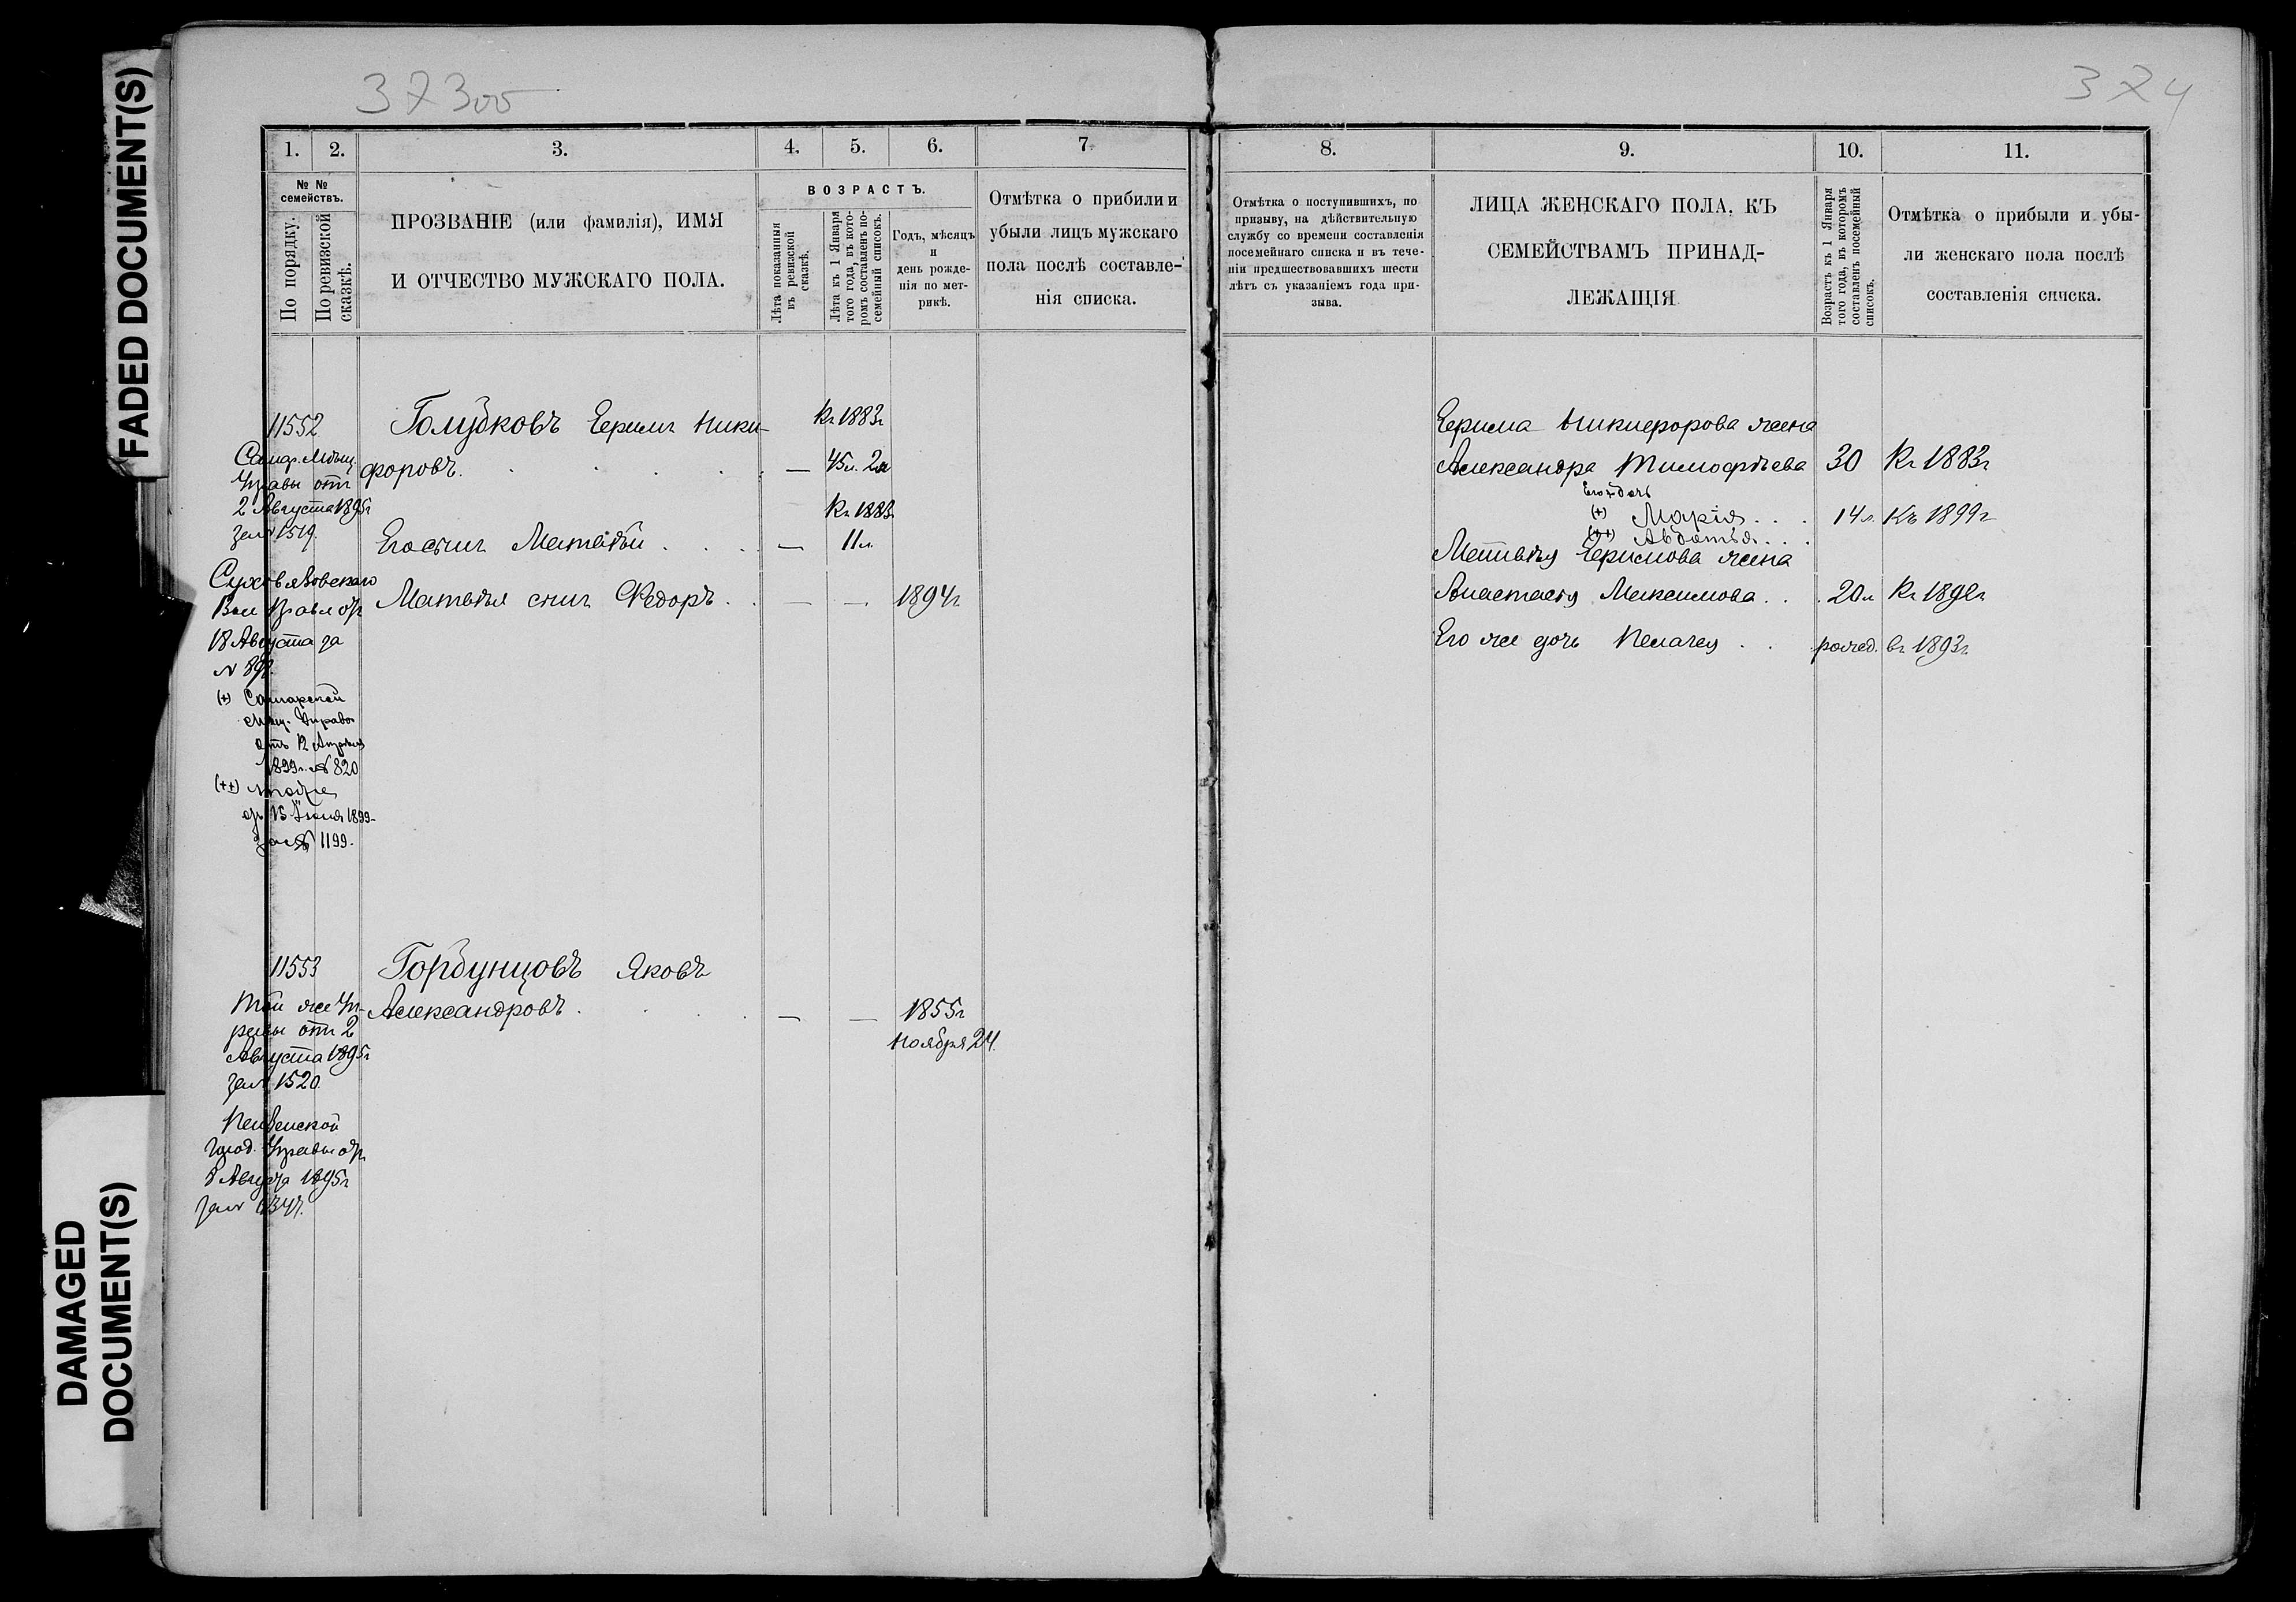 FADED DOCUMENT(S)
DAMAGED
DOCUMENT(S)
373об
374
1. 2. 3. 4. 5. 6. 7
№ №
семействъ.
По порядку.
По ревизской
сказкѣ.
ПРОЗВАНІЕ (или фамилія), ИМЯ
И ОТЧЕСТВО МУЖСКАГО ПОЛА.
ВОЗРАСТЪ.
Лѣта показанныя
въ ревизской
сказкѣ.
Лѣта къ 1 Января
того года, въ кото-
ромъ составленъ по-
семейный списокъ.
Годъ, мѣсяцъ
и
день рожде-
нія по мет-
рикѣ.
Отмѣтка о прибыли и
убыли лицъ мужскаго
пола послѣ составле-
нія списка.
11552
Самар. Мѣщ.
Управы отъ
2 Августа 1895г
за № 1519.
Вол Правл от
18 Августа за
№ 892.
(+) Самарской
Мѣщ. Управы
отъ 12 Апрѣля
1899г. № 820
(++) тоже
от 15 Іюня 1899
за № 1199.
Голубковъ Ефимъ Ники-
форовъ. — 45л. 2м
Къ 1883г
Къ 1883г
Его сынъ Матвѣй . . . . — 11л.
Матвѣя сынъ Ѳедоръ . . — — 1894г
11553
Той же Уп-
равы отъ 2
Августа 1895г
за № 1520.
город. Управы от
8 Августа 1895г
Горбунцовъ Яковъ
Александровъ . . . . — — 1855г
Ноября 24.
8. 9. 10. 11.
Отмѣтка о поступившихъ, по
призыву, на дѣйствительную
службу со времени составленія
посемейнаго списка и въ тече-
ніи предшествовавшихъ шести
лѣтъ съ указаніемъ года при-
зыва.
ЛИЦА ЖЕНСКАГО ПОЛА, КЪ
СЕМЕЙСТВАМЪ ПРИНАД-
ЛЕЖАЩІЯ
Возрастъ къ 1 Января
того года, въ которомъ
составленъ посемейный
списокъ.
Отмѣтка о прибыли и убы-
ли женскаго пола послѣ
составленія списка.
Ефима Никифорова жена
Александра Тимофѣева 30 Къ 1883г
Его дочь
(+) Марія . . . 14л. Къ 1899г
(++) Авдотья . . .
Матвѣя Ефимова жена
Анастасія Максимова . . . 20л Къ 1892г
Его же дочь Пелагея . . рожд. въ 1893г.